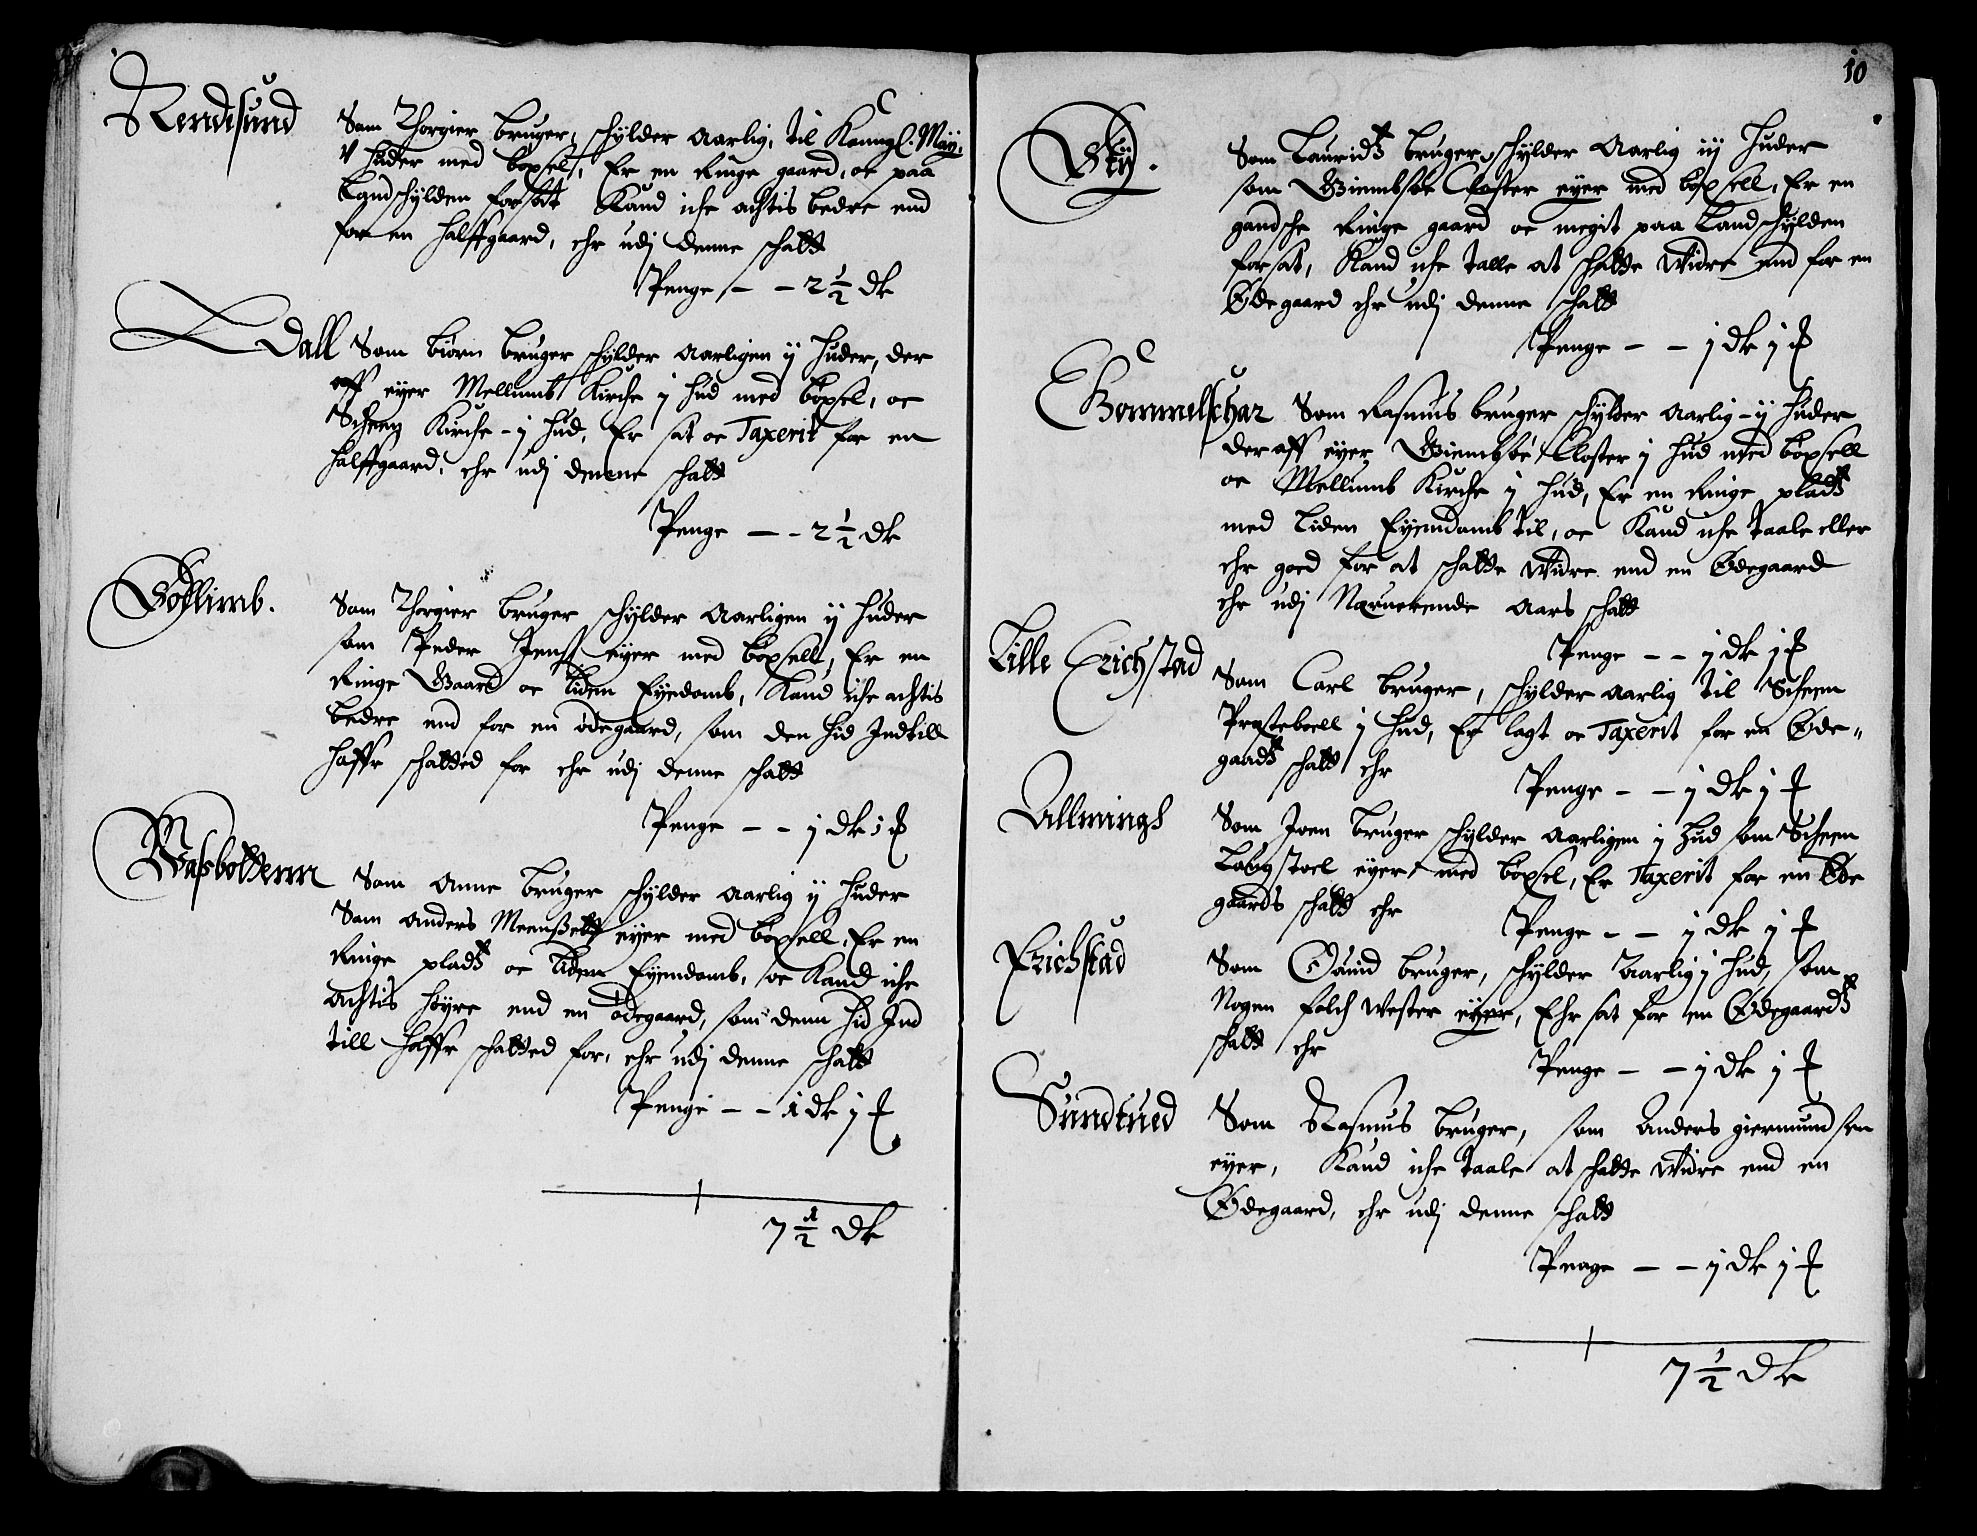 Rendesund
Som Thorgier bruger, schylder Aarlig, til Konngl. May,
v huder med böxsel, Er en Ringe gaard, oc paa
Landschylden forsatt Kand iche achtis bedre end
for en halffgaard, ehr udj denne schatt
Penge – – 2½ dk
Dall Som biörn bruger schylder Aarligen ij huder, der
aff eyer Mellumb Kirche j hud med böxsel, oc
Scheen Kirche – j hud, Er sat oc Taxerit for en
halffgaard, ehr udj denne schatt
Penge – – 2½ dk
Som Thorgier bruger schylder Aarligen ij huder
som Peder Jenss eyer med böxsell, Er en
Ringe Gaard oc liden Eyedomb, Kand iche achtis
bedre end for en ödegaard, som den hid Indtill
haffr schatted for ehr udj denne schatt
Penge – – j dk j ƒ
Wasbottenn
Som Anne bruger schylder Aarlig ij huder
Som Anders eyer med böxsell, Er en
Ringe pladtz oc liden Eyendomb, oc Kand iche
Achtis höyre end en ödegaard, som denn hid Ind
till haffr schatted for, ehr udj denne schatt
Penge – – 1 dk j ƒ
7½ dk
10
Som Lauridtz bruger, schylder Aarlig iij huder
som Giembsöe Closter eyer med böxsell, Er en
gandsche Ringe gaard oc megit paa Landschylden
forsat, Kand iche talle at schatte Widre end for en
Ödegaard ehr udj denne schatt
Penge – – j dk j ƒ
Bommelschar Som Rasmus bruger schylder Aarlig – ij huder
der aff eyer Giembsöe Closter j hud med böxsell
oc Mellumb Kirche j hud, Er en Ringe pladtz
med liden Eyendomb til, oc Kand iche taale eller
ehr goed for at schatte Widre end en Ödegaard
ehr udj Nærverende Aars schatt
Penge – – j dk j ƒ
Lille Erichstad
Som Carl bruger, schylder Aarlig til Scheen
Præsteboell j hud, Er lagt oc Taxerit for en Öde-
gaardtz schatt ehr
Penge – – j dk j ƒ
Allmings
Som Joen bruger schylder Aarligen j hud som Scheen
Laugstoel eyer med böxsel, Er Taxerit for en Öde
gaards schatt ehr
Penge – – j dk j ƒ
Erichstad
Som Öuind bruger, schylder Aarlig j hud, som
Nogen folch Wester eyer, Ehr sat for en Ödegaardtz
schatt ehr
Penge – – j dk j ƒ
Sundtued
Som Rasmus bruger, som Anders giermundsen
eyer, Kand iche taale at schatte Widre end en
Ödegaard, ehr udj denne schatt
Penge – – j dk j ƒ
7½ dk